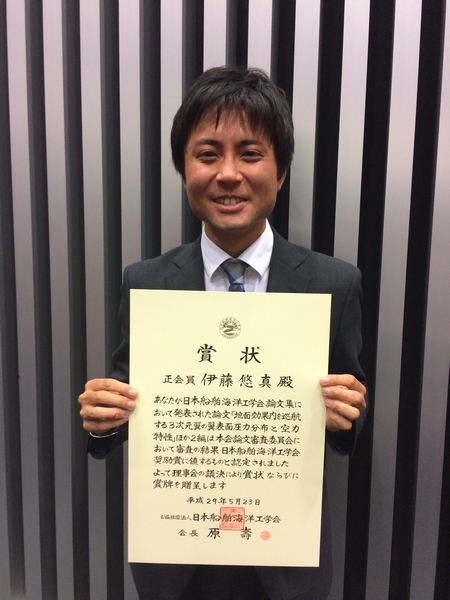 賞状
正会員 伊藤悠真殿
あなたが日本船舶海洋工学会論文集に
おいて発表された論文「地面効果内を巡航
する3次元翼の翼表面圧力分布と空力
特性」ほか2編は本会論文審査委員会に
おいて審査の結果日本船舶海洋工学会
奨励賞に値するものと認定されました
よって理事会の議決により賞状ならびに
賞牌を贈呈します
平成29年5月23日
公益社団法人日本船舶海洋工学会
会長 原 壽